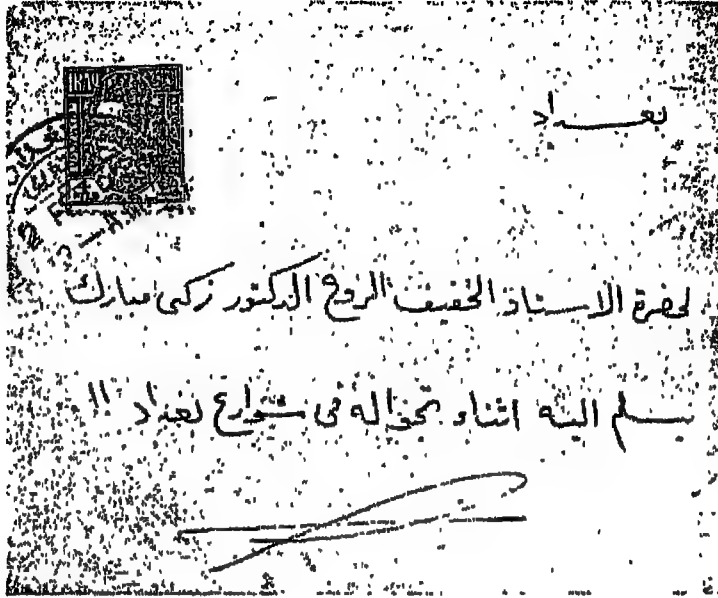 بغداد
لحضرة الاستاذ الخفيف الروح الدكتور زكى مبارك
يسلم اليه اثناء تجواله فى شوارع بغداد "